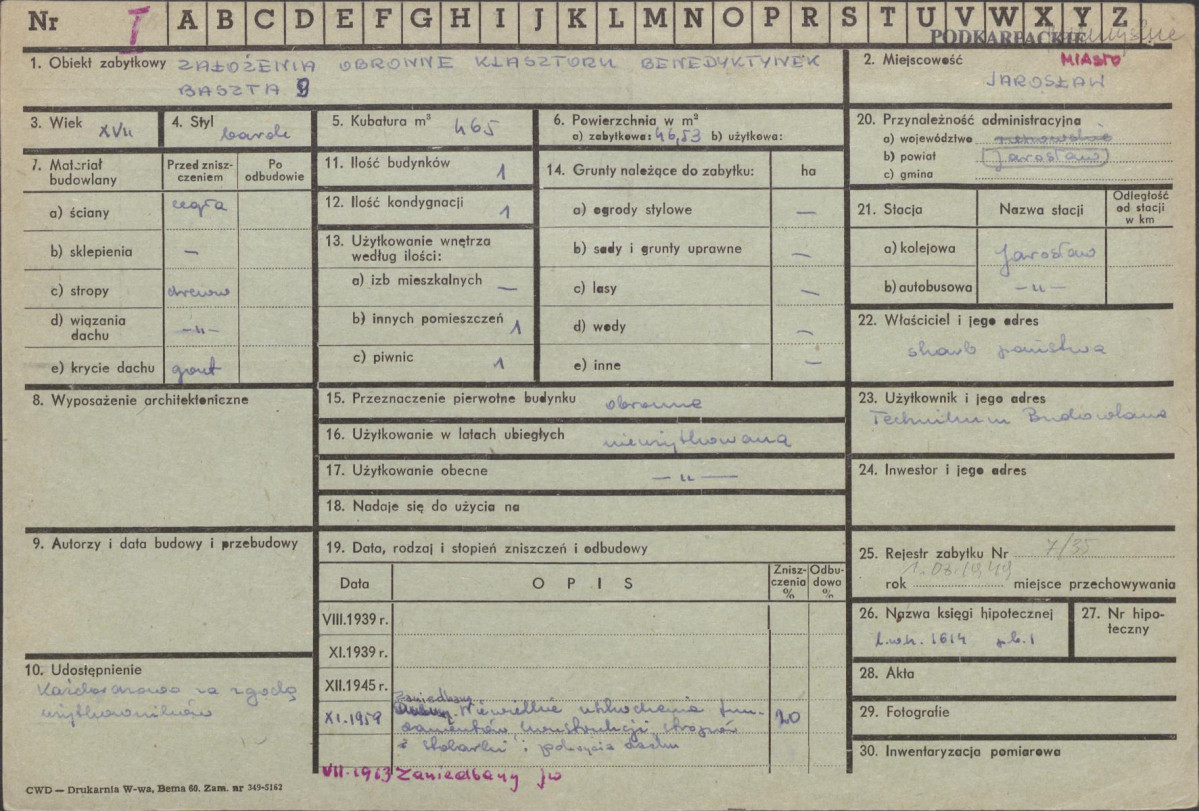 Nr I A B C D E F G H I J K L M N O P R S T U V W X Y Z
PODKARPACKIE
1. Obiekt zabytkowy ZAŁOŻENIA OBRONNE KLASZTORU BENEDYKTYNEK
BASZTA 9
2. Miejscowość MIASTO
JAROSŁAW
3. Wiek XVII
4. Styl barok
5. Kubatura m³ 465
6. Powierzchnia w m²
a) zabytkowa: 46,53 b) użytkowa:
20. Przynależność administracyjna
a) województwo rzeszowskie
b) powiat Jarosław
c) gmina
7. Materiał budowlany
Przed zniszczeniem
Po odbudowie
a) ściany cegła
b) sklepienia —
c) stropy drewno
d) wiązania dachu —„—
e) krycie dachu gont
11. Ilość budynków 1
12. Ilość kondygnacji 1
13. Użytkowanie wnętrza
według ilości:
a) izb mieszkalnych —
b) innych pomieszczeń 1
c) piwnic 1
14. Grunty należące do zabytku: ha
a) ogrody stylowe —
b) sady i grunty uprawne —
c) lasy —
d) wody —
e) inne —
21. Stacja Nazwa stacji Odległość od stacji w km
a) kolejowa Jarosław
b) autobusowa —„—
22. Właściciel i jego adres
skarb państwa
8. Wyposażenie architektoniczne
15. Przeznaczenie pierwotne budynku obronne
16. Użytkowanie w latach ubiegłych nieużytkowana
17. Użytkowanie obecne —„—
18. Nadaje się do użycia na
23. Użytkownik i jego adres
Technikum Budowlane
24. Inwestor i jego adres
9. Autorzy i data budowy i przebudowy
19. Data, rodzaj i stopień zniszczeń i odbudowy
Data OPIS Zniszczenia % Odbudowa %
VIII.1939 r.
XI.1939 r.
XII.1945 r.
zaniedbany
XI.1959 Niewielkie uszkodzenia fun- 20
damentów, konstrukcji stropów
i pokrycia dachu
VII-1963 Zaniedbany jw
25. Rejestr zabytku Nr 7/35
rok miejsce przechowywania
26. Nazwa księgi hipotecznej
l.w.h. 1614 p.b. 1
27. Nr hipoteczny
10. Udostępnienie
Każdorazowo za zgodą
użytkowników
28. Akta
29. Fotografie
30. Inwentaryzacja pomiarowa
CWD — Drukarnia W-wa, Bema 60. Zam. nr 349-5162